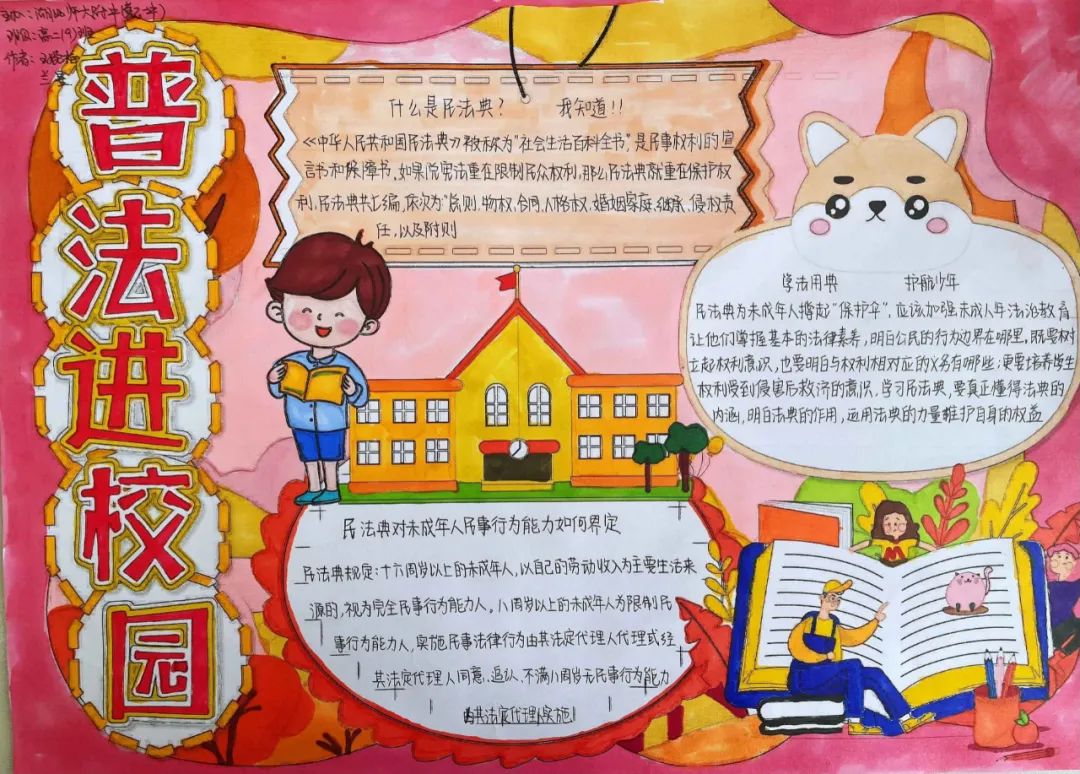 班级：高二(9)班
作者：
普法进校园
什么是民法典？ 我知道！！
《中华人民共和国民法典》被称为"社会生活百科全书"，是民事权利的宣
言书和保障书，如果说宪法重在限制民众权利，那么民法典就重在保护权
利，民法典共七编，依次为"总则、物权、合同、人格权、婚姻家庭、继承、侵权责
任，以及附则
学法用典 护航少年
民法典为未成年人撑起"保护伞"，应该加强未成人年法治教育
让他们掌握基本的法律素养，明白公民的行为边界在哪里，既要树
立起权利意识，也要明白与权利相对应的义务有哪些；更要培养学生
权利受到侵害后救济的意识，学习民法典，要真正懂得法典的
内涵，明白法典的作用，运用法典的力量维护自身的权益
民法典对未成年人民事行为能力如何界定
民法典规定：十六周岁以上的未成年人，以自己的劳动收入为主要生活来
源的，视为完全民事行为能力人，八周岁以上的未成年人为限制民
事行为能力人，实施民事法律行为由其法定代理人代理或经
其法定代理人同意、追认、不满八周岁无民事行为能力
由其法定代理人实施
M